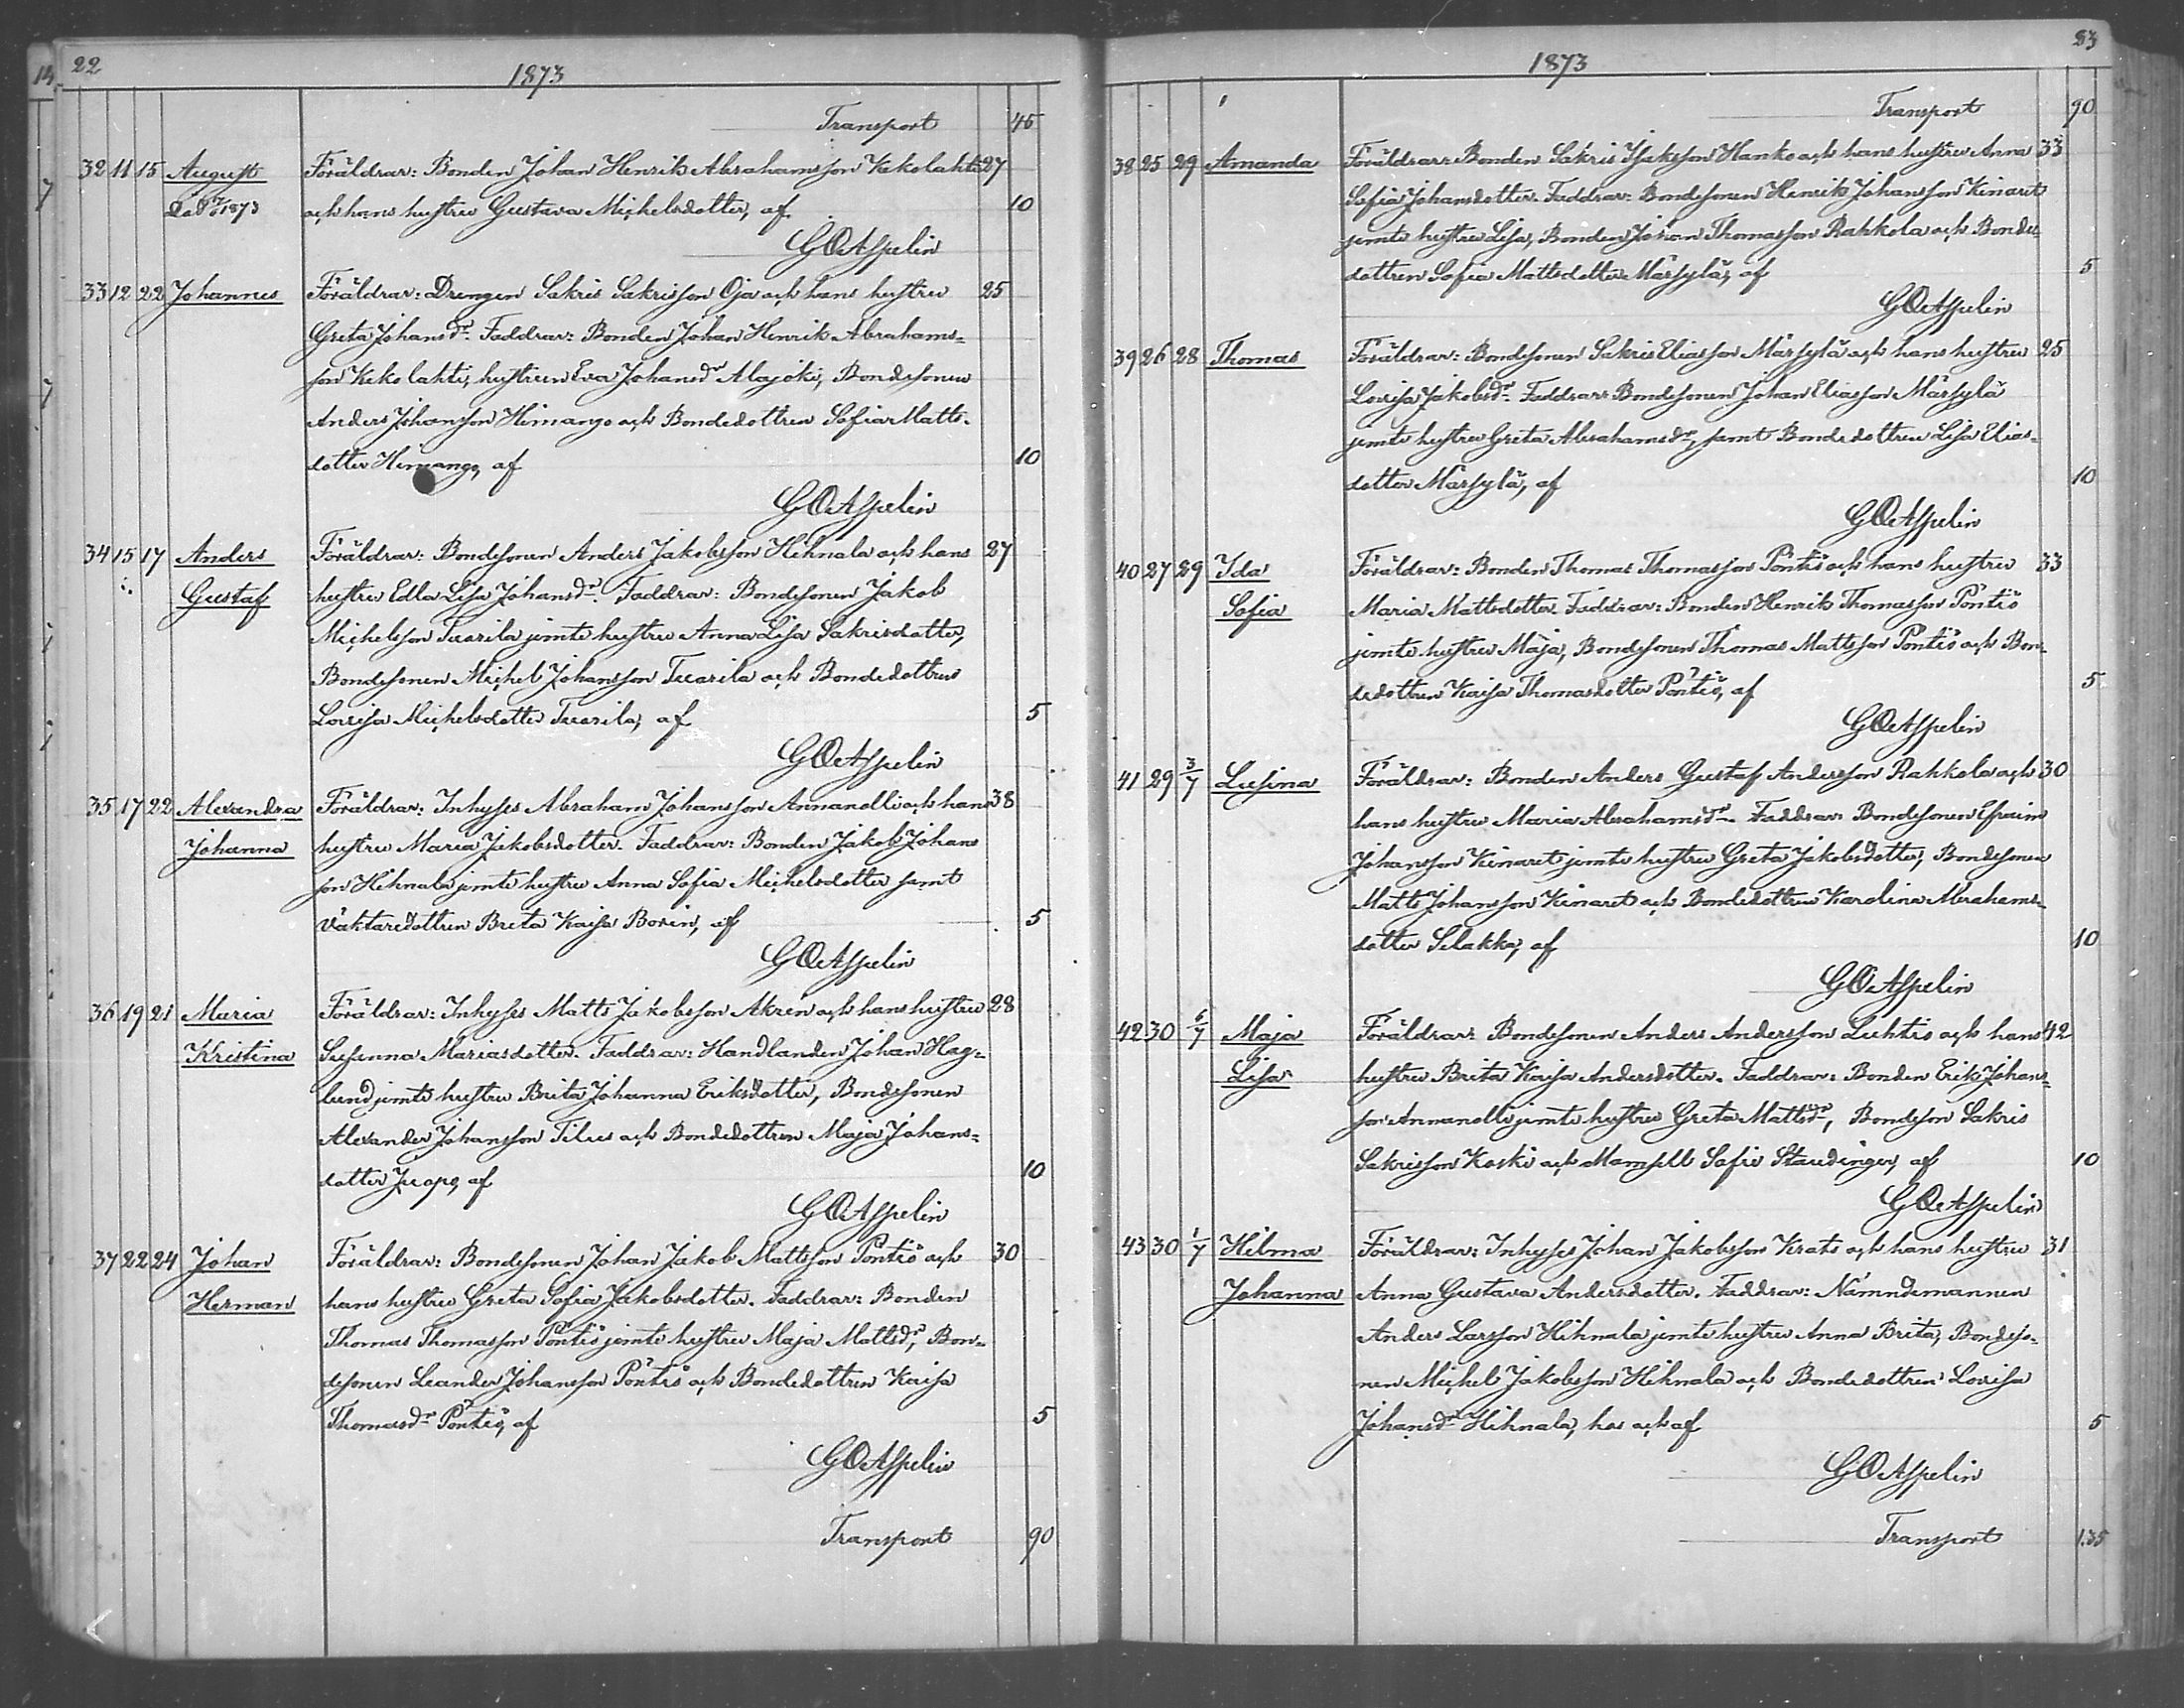 22
1873
Transport 45
32 11 15 August Föräldrar: Bonden Johan Henrik Abrahamsson Kekolahti 27
1873 och hans hustru Gustava Michelsdotter, af 10
GOAspelin
33 12 22 Johannes Föräldrar: Drengen Sakris Sakrisson Oja och hans hustru 25
Greta Johansdr. Faddrar: Bonden Johan Henrik Abrahams-
son Kekolahti, hustrun Eva Johansdr Alajoki, Bondesonen
Anders Johansson Himango och Bondedottren Sofia Matts-
dotter Himango, af 10
GOAspelin
34 15 17 Anders Föräldrar: Bondesonen Anders Jakobsson Hihnala och hans 27
Gustaf hustru Edla Lisa Johansdr. Faddrar: Bondesonen Jakob
Michelsson Tuorila jemte hustru Anna Lisa Sakrisdotter,
Bondesonen Michel Johansson Tuorila och Bondedottren
Lovisa Michelsdotter Tuorila, af 5
GOAspelin
35 17 22 Alexandra Föräldrar: Inhyses Abraham Johansson Annanolli och hans 38
Johanna hustru Maria Jakobsdotter. Faddrar: Bonden Jakob Johans
son Hihnala jemte hustru Anna Sofia Michelsdotter samt
Väktaredottren Breta Kaisa Borin, af 5
GOAspelin
36 19 21 Maria Föräldrar: Inhyses Matts Jakobsson Akren och hans hustru 28
Kristina Susanna Mariasdotter. Faddrar: Handlanden Johan Hag-
lund jemte hustru Brita Johanna Eriksdotter, Bondesonen
Alexander Johansson Tilus och Bondedottren Maja Johans-
dotter Juopo, af 10
GOAspelin
37 22 24 Johan Föräldrar: Bondesonen Johan Jakob Mattsson Pöntiö och 30
Herman hans hustru Greta Sofia Jakobsdotter. Faddrar: Bonden
Thomas Thomasson Pöntiö jemte hustru Maja Mattsdr, Bon-
desonen Leander Johansson Pöntiö och Bondedottren Kaisa
Thomasdr Pöntiö, af 5
GOAspelin
Transport 90
23
1873
Transport 90
38 25 29 Amanda Föräldrar: Bonden Sakris Isaksson Hanko och hans hustru Anna 33
Sofia Johansdotter. Faddrar: Bondesonen Henrik Johansson Kinaret
jemte hustru Lisa, Bonden Johan Thomasson Rahkola och Bonde-
dottren Sofia Mattsdotter Märsylä, af 5
GOAspelin
39 26 28 Thomas Föräldrar: Bondesonen Sakris Eliasson Märsylä och hans hustru 25
Lovisa Jakobsdr. Faddrar: Bondesonen Johan Eliasson Märsylä
jemte hustru Greta Abrahamsdr, samt Bondedottren Lisa Elias-
dotter Märsylä, af 10
GOAspelin
40 27 29 Ida Föräldrar: Bonden Thomas Thomasson Pöntiö och hans hustru 33
Sofia Maria Mattsdotter. Faddrar: Bonden Henrik Thomasson Pöntiö
jemte hustru Maja, Bondesonen Thomas Mattsson Pöntiö och Bon-
dedottren Kaisa Thomasdotter Pöntiö, af 5
GOAspelin
41 29 3/7 Lusina Föräldrar: Bonden Anders Gustaf Andersson Rahkola och 30
hans hustru Maria Abrahamsdr. Faddrar: Bondesonen Efraim
Johansson Kinaret jemte hustru Greta Jakobsdotter, Bondesonen
Matts Johansson Kinaret och Bondedottren Karolina Abrahams-
dotter Silakka, af 10
GOAspelin
42 30 6/7 Maja Föräldrar: Bondesonen Anders Andersson Luhtis och hans 42
Lisa hustru Brita Kaisa Andersdotter. Faddrar: Bonden Erik Johans-
son Annanolli jemte hustru Greta Mattsdr, Bondeson Sakris
Sakrisson Koski och Mamsell Sofie Staudinger, af 10
GOAspelin
43 30 1/7 Hilma Föräldrar: Inhyses Johan Jakobsson Krats och hans hustru 31
Johanna Anna Gustava Andersdotter. Faddrar: Nämndemannen
Anders Larsson Hihnala jemte hustru Anna Brita, Bondeso-
nen Michel Jakobsson Hihnala och Bondedottren Lovisa
Johansdr Hihnala, hos och af 5
GOAspelin
Transport 135